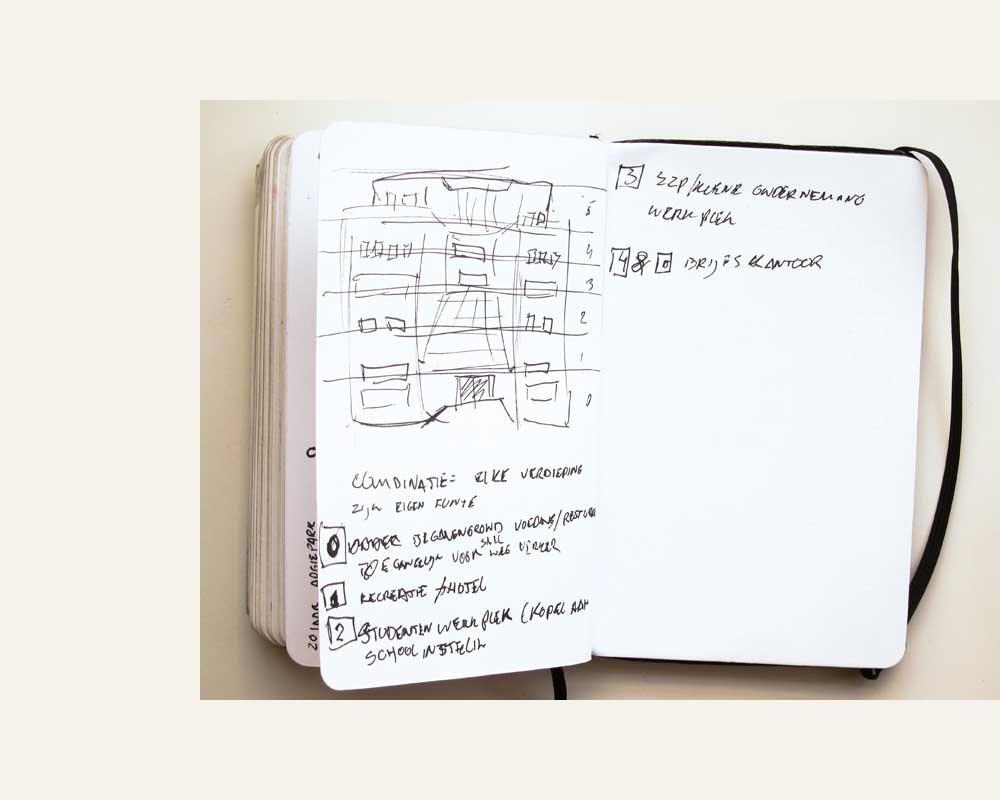 5
4
3
2
1
0
COMBINATIE = ELKE VERDIEPING
ZIJN EIGEN FUNTIE
0 BEGANEGROND VOEDING/RESTURA
TOEGANGLIJK VOOR SNEL WEG VERKEER
1 RECREATIE / HOTEL
2 STUDENTEN WERKPLEK (KOPEL AAN
SCHOOL INSTELLIN
3 ZZP/KLEINE ONDERNEMING
WERKPLEK
4 & KANTOOR
20 JAAR